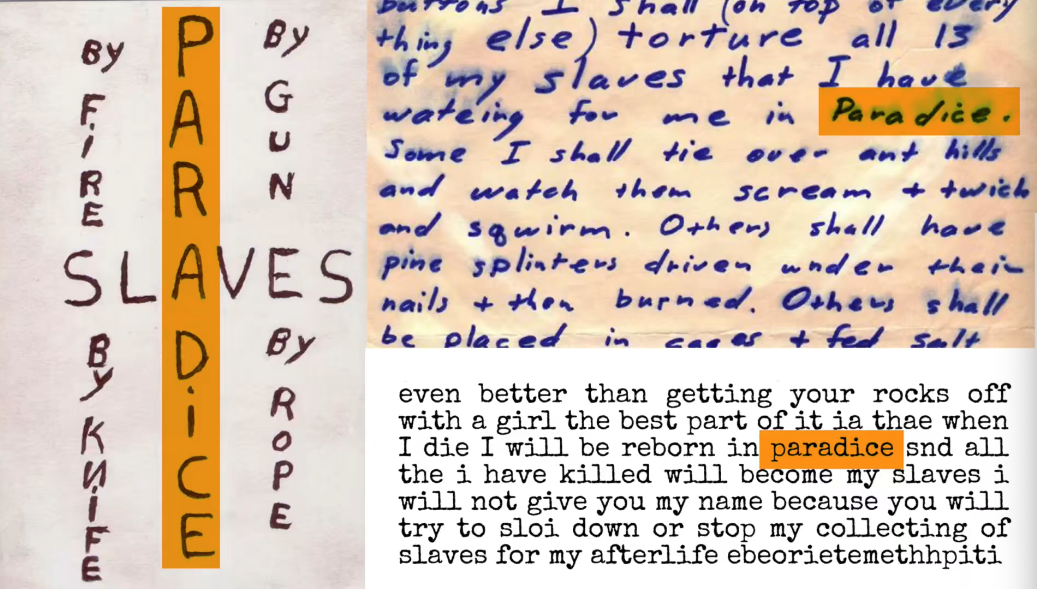 BY FiRE
PARADiCE
BY GUN
SLAVES
BY KNiFE
BY ROPE
buttons I shall (on top of every
thing else) torture all 13
of my slaves that I have
wateing for me in Paradice.
Some I shall tie over ant hills
and watch them scream + twich
and sqwirm. Others shall have
pine splinters driven under their
nails + then burned. Others shall
be placed in cages + fed salt
even better than getting your rocks off
with a girl the best part of it ia thae when
I die I will be reborn in paradice snd all
the i have killed will become my slaves i
will not give you my name because you will
try to sloi down or stop my collecting of
slaves for my afterlife ebeorietemethhpiti